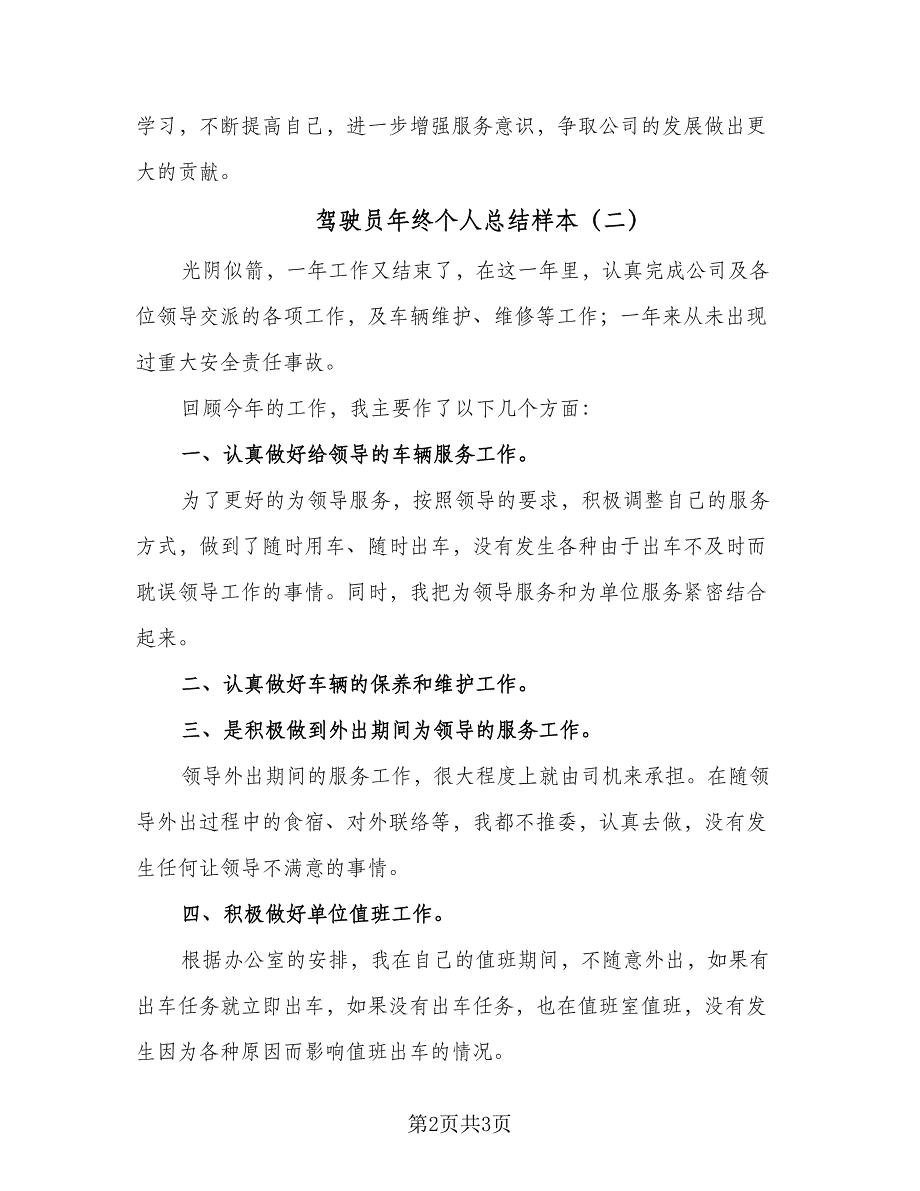 学习，不断提高自己，进一步增强服务意识，争取公司的发展做出更
大的贡献。
驾驶员年终个人总结样本（二）
光阴似箭，一年工作又结束了，在这一年里，认真完成公司及各
位领导交派的各项工作，及车辆维护、维修等工作；一年来从未出现
过重大安全责任事故。
回顾今年的工作，我主要作了以下几个方面：
一、认真做好给领导的车辆服务工作。
为了更好的为领导服务，按照领导的要求，积极调整自己的服务
方式，做到了随时用车、随时出车，没有发生各种由于出车不及时而
耽误领导工作的事情。同时，我把为领导服务和为单位服务紧密结合
起来。
二、认真做好车辆的保养和维护工作。
三、是积极做到外出期间为领导的服务工作。
领导外出期间的服务工作，很大程度上就由司机来承担。在随领
导外出过程中的食宿、对外联络等，我都不推委，认真去做，没有发
生任何让领导不满意的事情。
四、积极做好单位值班工作。
根据办公室的安排，我在自己的值班期间，不随意外出，如果有
出车任务就立即出车，如果没有出车任务，也在值班室值班，没有发
生因为各种原因而影响值班出车的情况。
第2页共3页